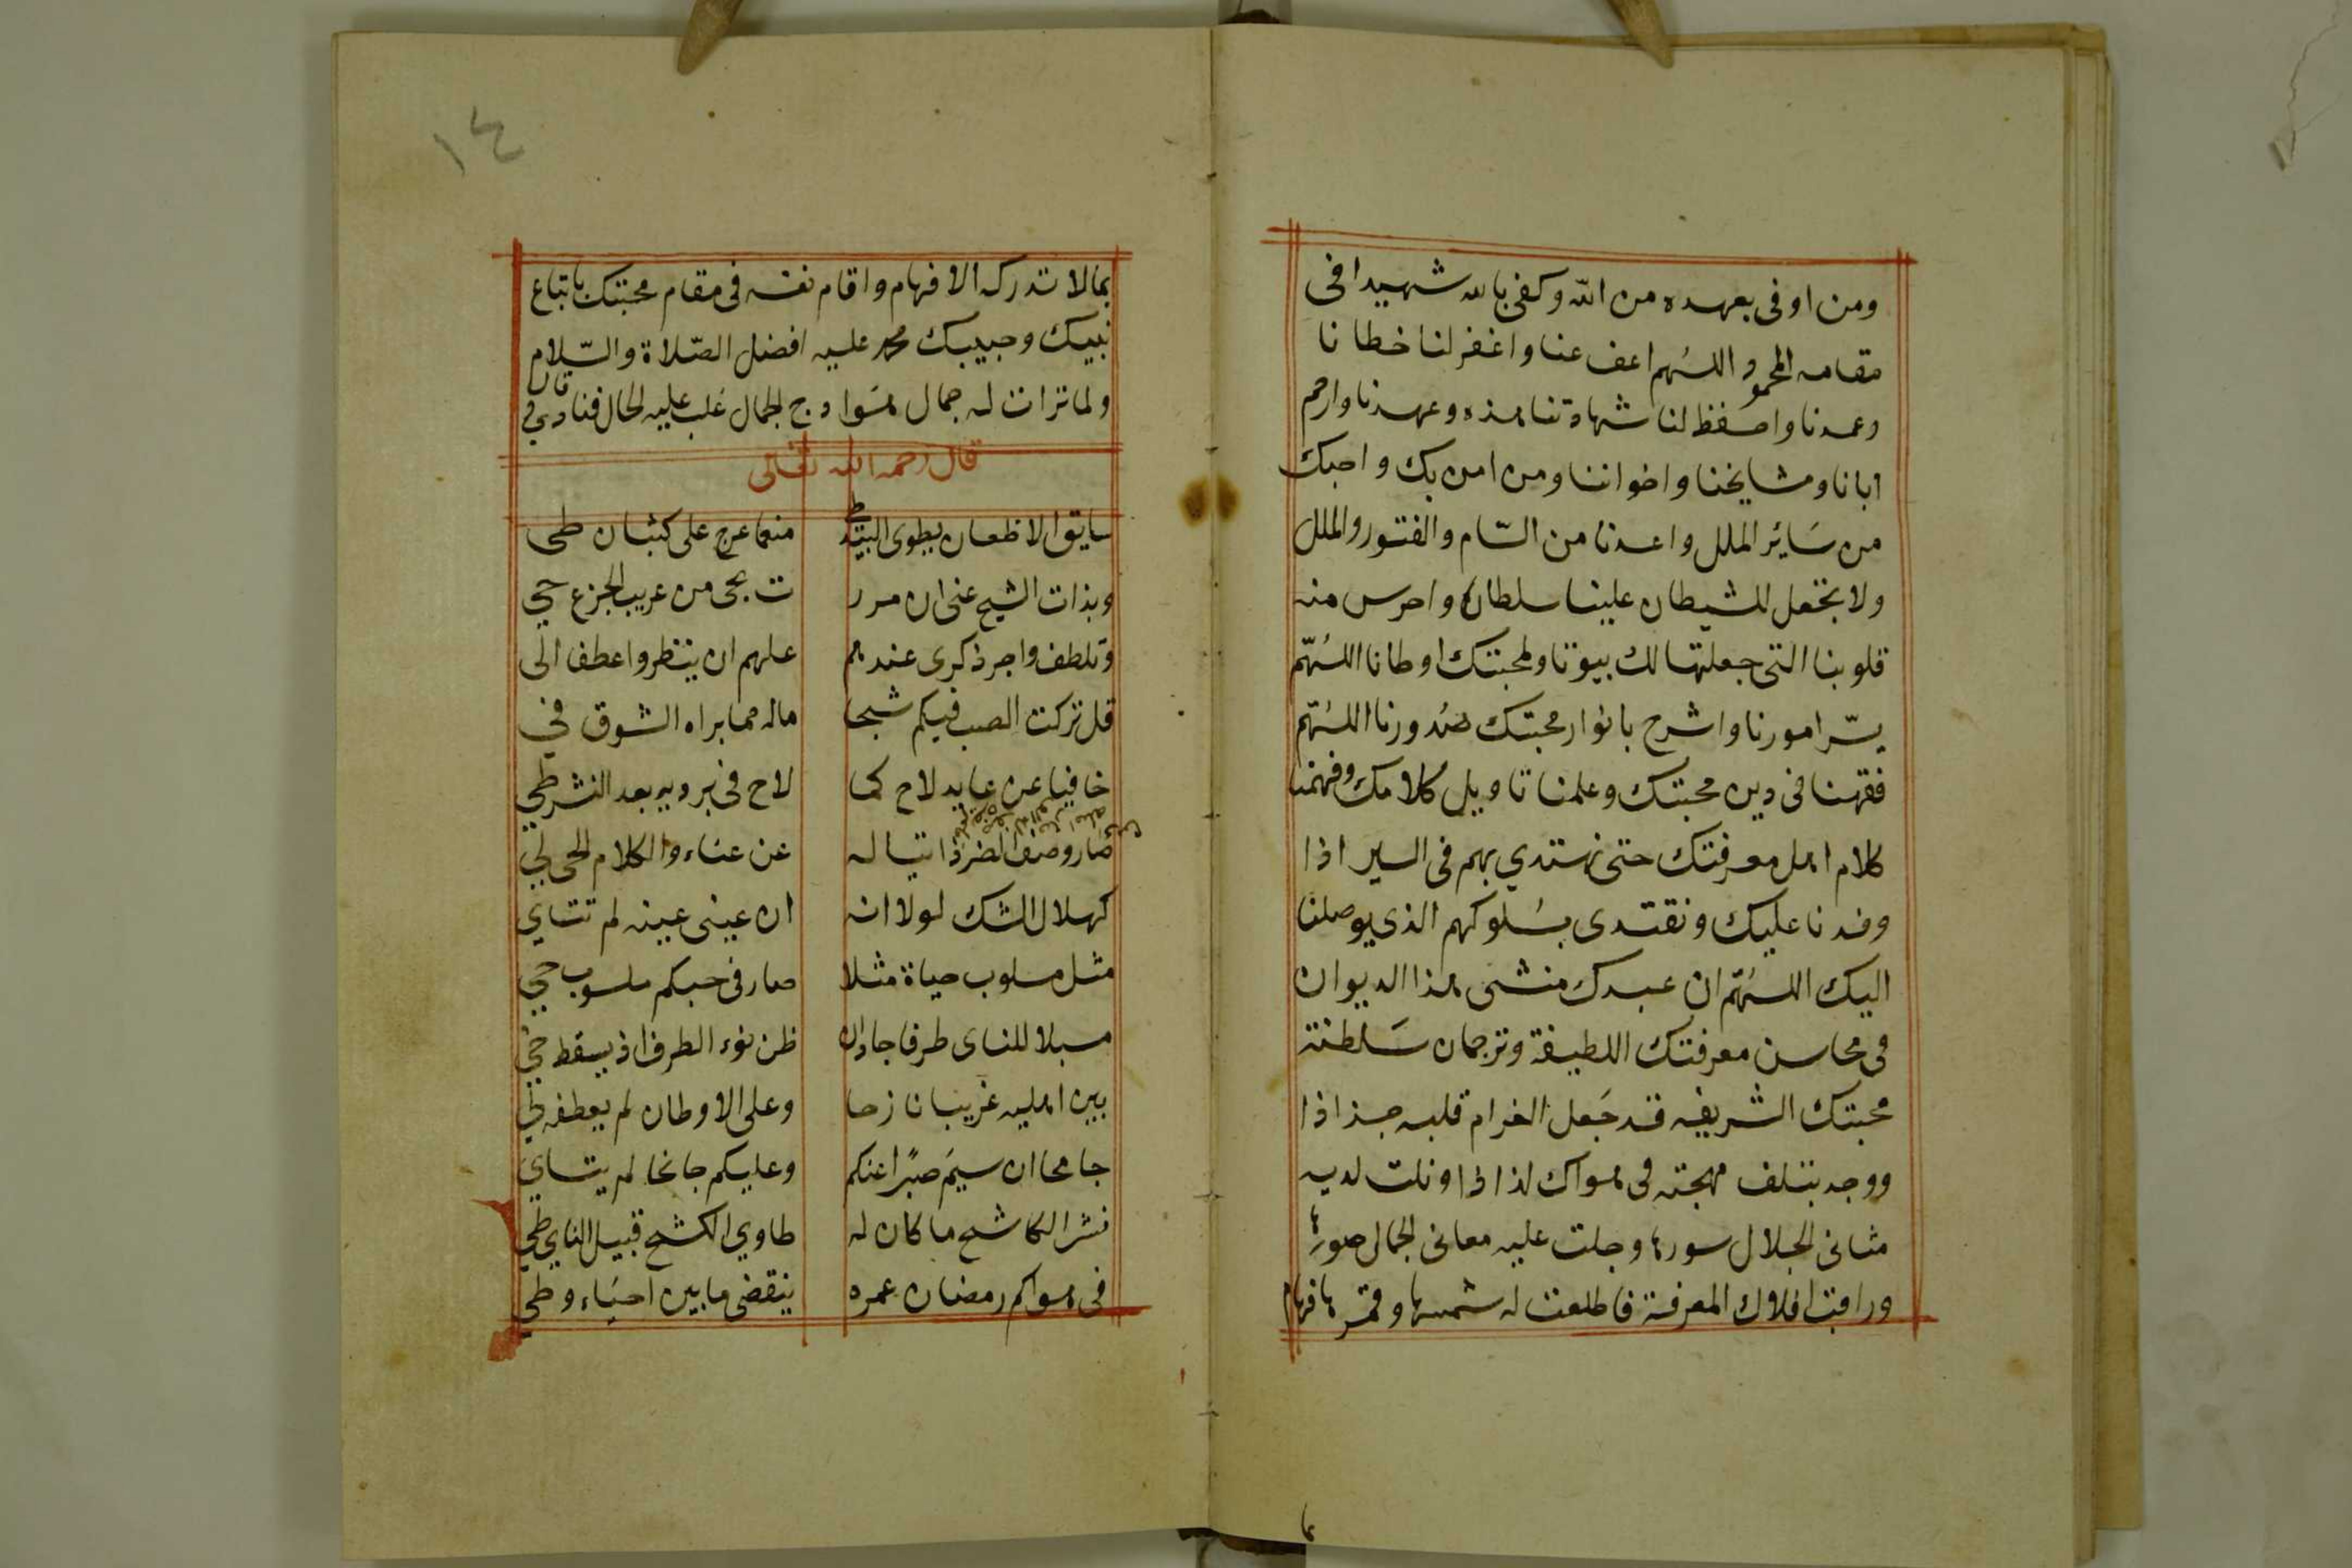 ومن اوفى بعهده من الله وكفى بالله شهيدا فى
مقامه المحمود اللهم اعف عنا واغفر لنا خطانا
وعمدنا واحفظ لنا شهادتنا هذه وعهدنا وارحم
ابانا ومشايخنا واخواننا ومن امن بك واحبك
من سَائر الملل واعذنا من السّام والفتور والملل
ولا تجعل للشيطان علينا سلطانا واحرس منه
قلوبنا التى جعلتها لك بيوتا ولمحبتك اوطانا اللهمّ
يسّر امورنا واشرح بانوار محبتك صدورنا اللهمّ
فقهنا فى دين محبتك وعلمنا تاويل كلامك وفهمنا
كلام اهل معرفتك حتى نهتدي بهم فى السير اذا
وفدنا عليك ونقتدى بسُلوكهم الذى يوصلنا
اليك اللهمّ ان عبدك منشى هذا الديوان
فى محاسن معرفتك اللطيفة وترجمان سَلطنة
محبتك الشريفه قد جَعل الغرام قلبه جذاذا
ووجد بتلف مهجته فى هواك لذاذا وتلت لديه
مثانى الجلال سورها وجلت عليه معانى الجمال صورها
وراقب افلاك المعرفة فاطلعت له شمسها وقمرها فهام
١٤
بمالا تدركه الافهام واقام نفسه فى مقام محبتك باتباع
نبيك وحبيبك محمد عليه افضل الصّلاة والسّلام
ولما ترات له جمال هَوادج الجمال غلب عليه الحال فنادي فى
قال
قال رحمه الله تعالى
سايق الاظعان يطوى البيد طى منعما عرج على كثبان طى
وبذات الشيح عنى ان مرر ت بحى من عريب الجزع حي
وتلطف واجر ذكرى عندهم علهم ان ينظروا عطفا الى
قل تركت الصب فيكم شبحا ماله مما براه الشوق في
خافيا عن عايد لاح كما لاح فى برديه بعد النشر طي
صار وصف الضر ذاتيا له عن عناء والكلام الحى لي
كهلال الشك لولا انه ان عينى عينه لم تتاي
مثل مسلوب حياة مثلا صار فى حبكم ملسوب حي
مسبلا للناى طرفا جاد ان ظن نوء الطرف اذ يسقط خي
بين اهليه غريبا نازحا وعلى الاوطان لم يعطفه لي
جامحا ان سيمَ صبرًا عنكم وعليكم جانحا لم يتاي
نشر الكاشح ما كان له طاوي الكشح قبيل الناي طي
فى هواكم رمضان عمره ينقضى ما بين احيَاء وطي